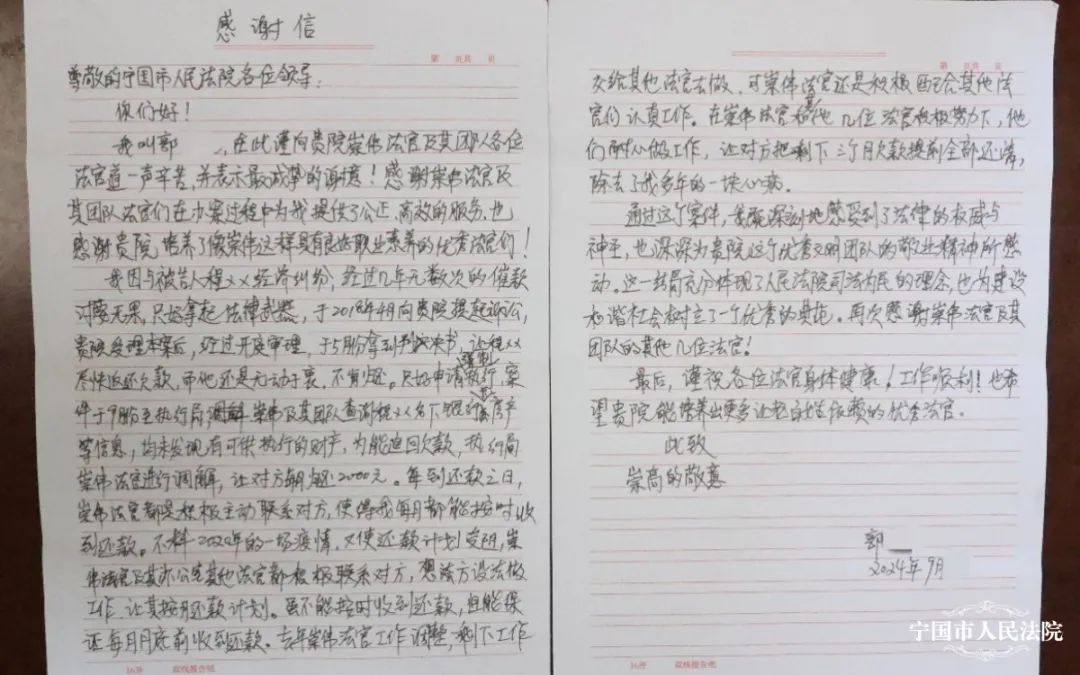 感谢信
第 页共 页
尊敬的宁国市人民法院各位领导:
你们好!
我叫郭 ,在此谨向贵院崇伟法官及其团队各位
法官道一声辛苦,并表示最诚挚的谢意!感谢崇伟法官及
其团队法官们在办案过程中为我提供了公正、高效的服务,也
感谢贵院培养了像崇伟这样具有良好职业素养的优秀法官们!
我因与被告人程××经济纠纷,经过几年无数次的催款
讨要无果,只好拿起法律武器,于2018年4月向贵院提起诉讼,
贵院受理本案后,经过开庭审理,于5月份拿到判决书,让程××
尽快返还欠款,而他还是无动于衷,不肯还。只好申请强制执行,案
件于9月份至执行局调解,崇伟及其团队查询程××名下银行存款房产
等信息,均未发现有可供执行的财产,为能追回欠款,执行局
崇伟法官进行调解,让对方每月还2000元。每到还款之日,
崇伟法官都是积极主动联系对方,使得我每月都能按时收
到还款。不料2020年的一场疫情,又使还款计划受阻,崇
伟法官及其办公室其他法官都积极联系对方,想法方设法做
工作,让其按月还款计划。虽不能按时收到还款,但能保
证每月月底前收到还款。去年崇伟法官工作调整,剩下工作
16开 双线报告纸
第 页共 页
交给其他法官去做,可崇伟法官还是积极配合其他法
官们认真工作。在崇伟法官和其他几位法官积极努力下,他
们耐心做工作,让对方把剩下三个月欠款提前全部还清,
除去了我多年的一块心病。
通过这个案件,我深深地感受到了法律的权威与
神圣,也深深为贵院这个优秀文明团队的敬业精神所感
动。这一结局充分体现了人民法院司法为民的理念,也为建设
和谐社会树立了一个优秀的典范。再次感谢崇伟法官及其
团队的其他几位法官!
最后,谨祝各位法官身体健康!工作顺利!也希
望贵院能培养出更多让老百姓依赖的优秀法官。
此致
崇高的敬意
郭
2024年9月
16开 双线报告纸
宁国市人民法院